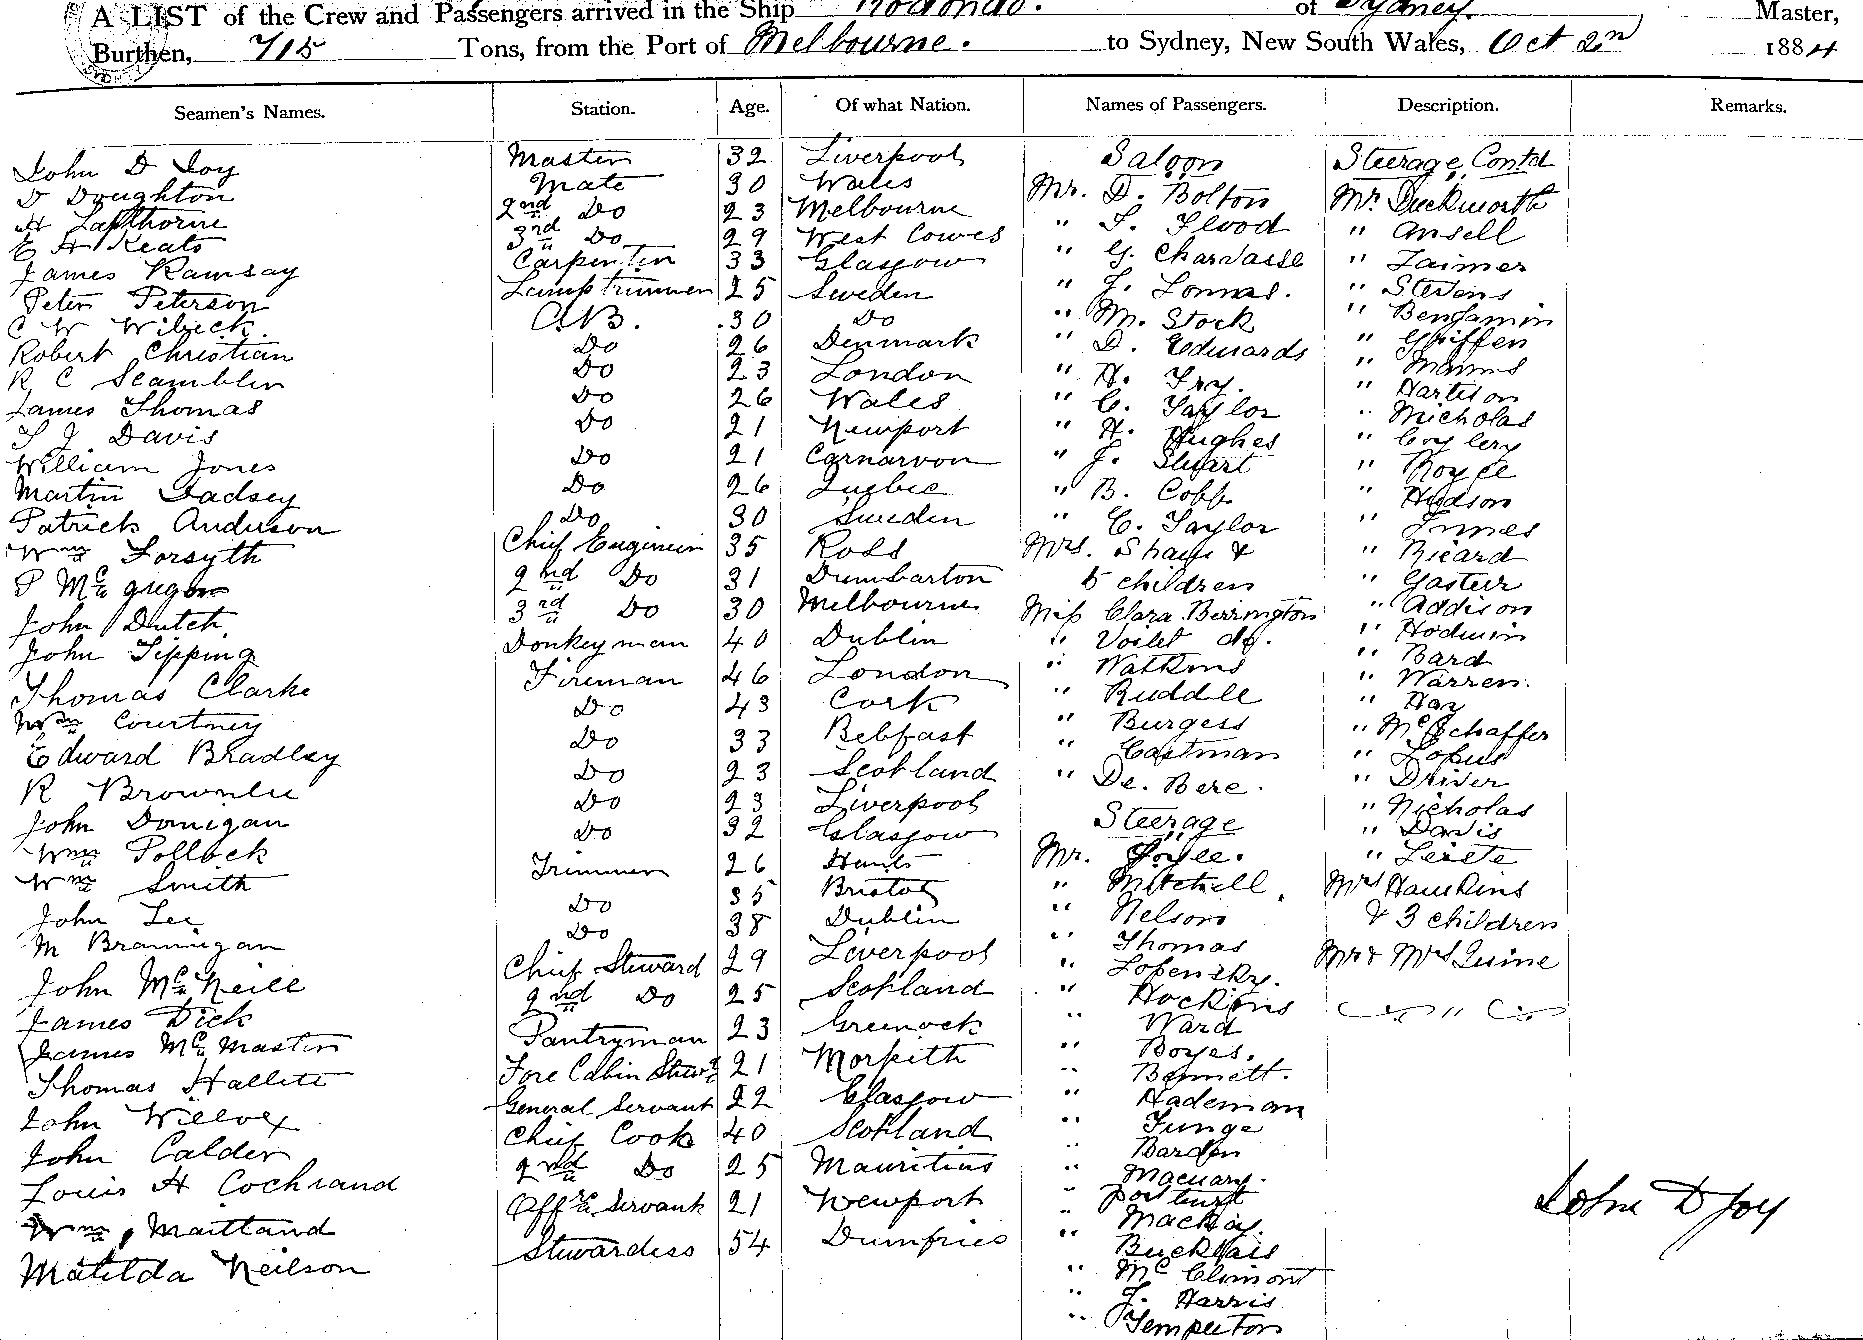 A LIST of the Crew and Passengers arrived in the Ship Rodondo. of Sydney. Master,
Burthen, 715 Tons, from the Port of Melbourne. to Sydney, New South Wales, Oct 2n 1884
Seamen's Names. Station. Age. Of what Nation. Names of Passengers. Description. Remarks.
John D Joy Master 32 Liverpool
D Doughton Mate 30 Wales
H Lapthorne 2nd Do 23 Melbourne
E H Keats 3rd Do 29 West Cowes
James Ramsay Carpenter 33 Glasgow
Peter Peterson Lamp trimmer 25 Sweden
C W Wibeck. A.B. 30 Do
Robert Christian Do 26 Denmark
R C Scambler Do 23 London
James Thomas Do 26 Wales
T J Davis Do 21 Newport
William Jones Do 21 Carnarvon
Martin Ladsey Do 26 Quebec
Patrick Anderson Do 30 Sweden
Wm Forsyth Chief Engineer 35 Ross
P McGregor 2nd Do 31 Dumbarton
John Dutch 3rd Do 30 Melbourne
John Tipping Donkeyman 40 Dublin
Thomas Clarke Fireman 46 London
Wm Courtney Do 43 Cork
Edward Bradley Do 33 Belfast
R Brownlie Do 23 Scotland
John Donigan Do 23 Liverpool
Wm Pollock Do 32 Glasgow
Wm Smith Trimmer 26 Hants
John Lee Do 35 Bristol
M Brannigan Do 38 Dublin
John McNeill Chief Steward 29 Liverpool
James Dick 2nd Do 25 Scotland
James McMaster Pantryman 23 Greenock
Thomas Hallett Fore Cabin Stewd 21 Morpeth
John Wilcox General Servant 22 Glasgow
John Calder Chief Cook 40 Scotland
Louis H Cochrand 2nd Do 25 Mauritius
Wm Maitland Offrs Servant 21 Newport
Matilda Neilson Stewardess 54 Dumfries
Saloon
Mr. D. Bolton
" S. Flood
" G. Charvasse
" J. Lomas.
" M. Stock
" D. Edwards
" H. Fry.
" C. Taylor
" H. Hughes
" J. Stuart
" B. Cobb
" C. Taylor
Mrs. Shaw &
5 children
Miss Clara Berrington
" Voilet do.
" Watkins
" Ruddle
" Burgess
" Eastman
" De. Bere.
Steerage
Mr. Joyce.
" Mitchell.
" Nelson
" Thomas
" Lobensky.
" Hockins
" Ward
" Boyes.
" Bennett.
" Hademan
" Funge
" Barden
" Macuary.
"
" Mackay.
" Bucklais
" McClimont
" J. Harris
" Tempeton
Steerage Contd
Mr. Duckworth
" Ansell
" Zaimer
" Stevens
" Benjamin
" Griffen
" Manns
" Harrison
" Nicholas
"
" Royce
" Hudson
" Innes
" Ricard
" Gasteir
" Addison
" Hodwin
" Bard
" Warren.
" Hay
" McSchaffer
" Lopus
" Driver
" Nicholas
" Davis
"
Mrs Hawkins
& 3 children
Mr & Mrs Quine
"
John D Joy